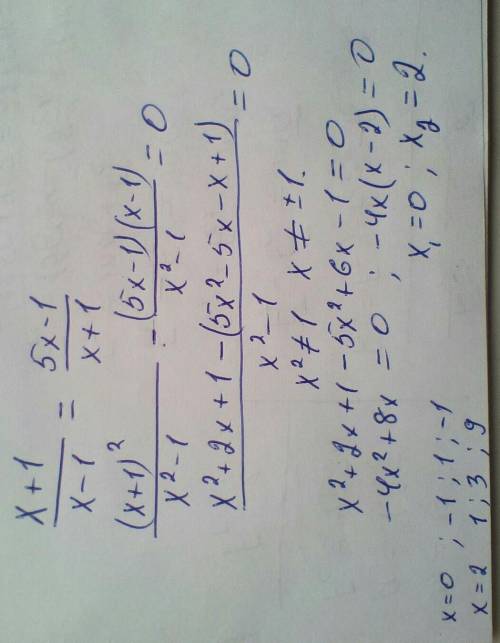 x+1/x-1 = 5x-1/x+1
(x+1)²/x²-1 - (5x-1)(x-1)/x²-1 = 0
x²+2x+1-(5x²-5x-x+1)/x²-1 = 0
x²≠1 x≠±1.
x²+2x+1-5x²+6x-1=0
-4x²+8x=0 ; -4x(x-2)=0
x₁=0 ; x₂=2.
x=0 ; -1 ; 1 ; -1
x=2 1 ; 3 ; 9